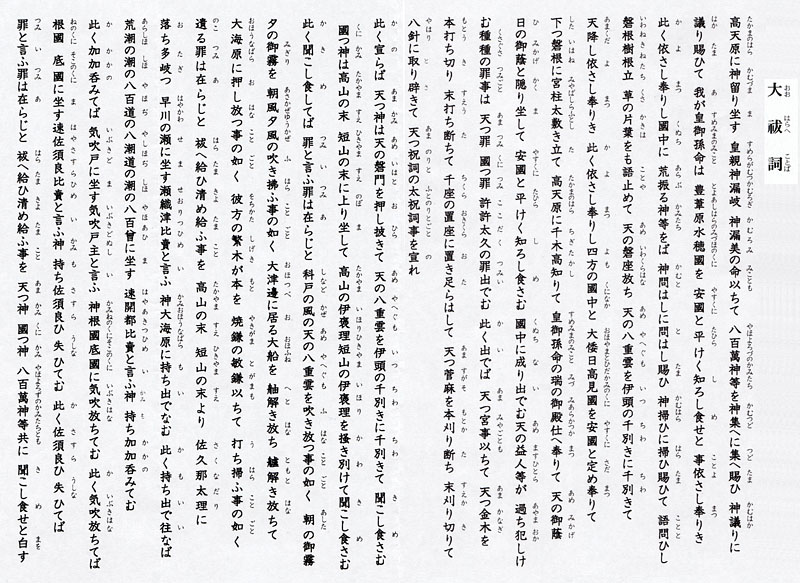 大祓詞
高天原に神留り坐す 皇親神漏岐 神漏美の命以ちて 八百萬神等を神集へに集へ賜ひ 神議りに
議り賜ひて 我が皇御孫命は 豊葦原水穂國を 安國と平けく知ろし食せと 事依さし奉りき
此く依さし奉りし國中に 荒振る神等をば 神問はしに問はし賜ひ 神掃ひに掃ひ賜ひて 語問ひし
磐根樹根立 草の片葉をも語止めて 天の磐座放ち 天の八重雲を伊頭の千別きに千別きて
天降し依さし奉りき 此く依さし奉りし四方の國中と 大倭日高見國を安國と定め奉りて
下つ磐根に宮柱太敷き立て 高天原に千木高知りて 皇御孫命の瑞の御殿仕へ奉りて 天の御蔭
日の御蔭と隠り坐して 安國と平けく知ろし食さむ 國中に成り出でむ天の益人等が 過ち犯しけ
む種種の罪事は 天つ罪 國つ罪 許許太久の罪出でむ 此く出でば 天つ宮事以ちて 天つ金木を
本打ち切り 末打ち断ちて 千座の置座に置き足らはして 天つ菅麻を本刈り断ち 末刈り切りて
八針に取り辟きて 天つ祝詞の太祝詞事を宣れ
此く宣らば 天つ神は天の磐門を押し披きて 天の八重雲を伊頭の千別きに千別きて 聞こし食さむ
國つ神は高山の末 短山の末に上り坐して 高山の伊褒理 短山の伊褒理を掻き別けて聞こし食さむ
此く聞こし食してば 罪と言ふ罪は在らじと 科戸の風の天の八重雲を吹き放つ事の如く 朝の御霧
夕の御霧を 朝風夕風の吹き拂ふ事の如く 大津邊に居る大船を 舳解き放ち 艫解き放ちて
大海原に押し放つ事の如く 彼方の繁木が本を 焼鎌の敏鎌以ちて 打ち掃ふ事の如く
遺る罪は在らじと 祓へ給ひ清め給ふ事を 高山の末 短山の末より 佐久那太理に
落ち多岐つ 早川の瀬に坐す瀬織津比賣と言ふ神 大海原に持ち出でなむ 此く持ち出で往なば
荒潮の潮の八百道の八潮道の潮の八百曾に坐す 速開都比賣と言ふ神 持ち加加呑みてむ
此く加加呑みてば 気吹戸に坐す気吹戸主と言ふ神 根國 底國に気吹放ちてむ 此く気吹放ちてば
根國 底國に坐す速佐須良比賣と言ふ神 持ち佐須良ひ失ひてむ 此く佐須良ひ失ひてば
罪と言ふ罪は在らじと 祓へ給ひ清め給ふ事を 天つ神 國つ神 八百萬神等共に 聞こし食せと白す